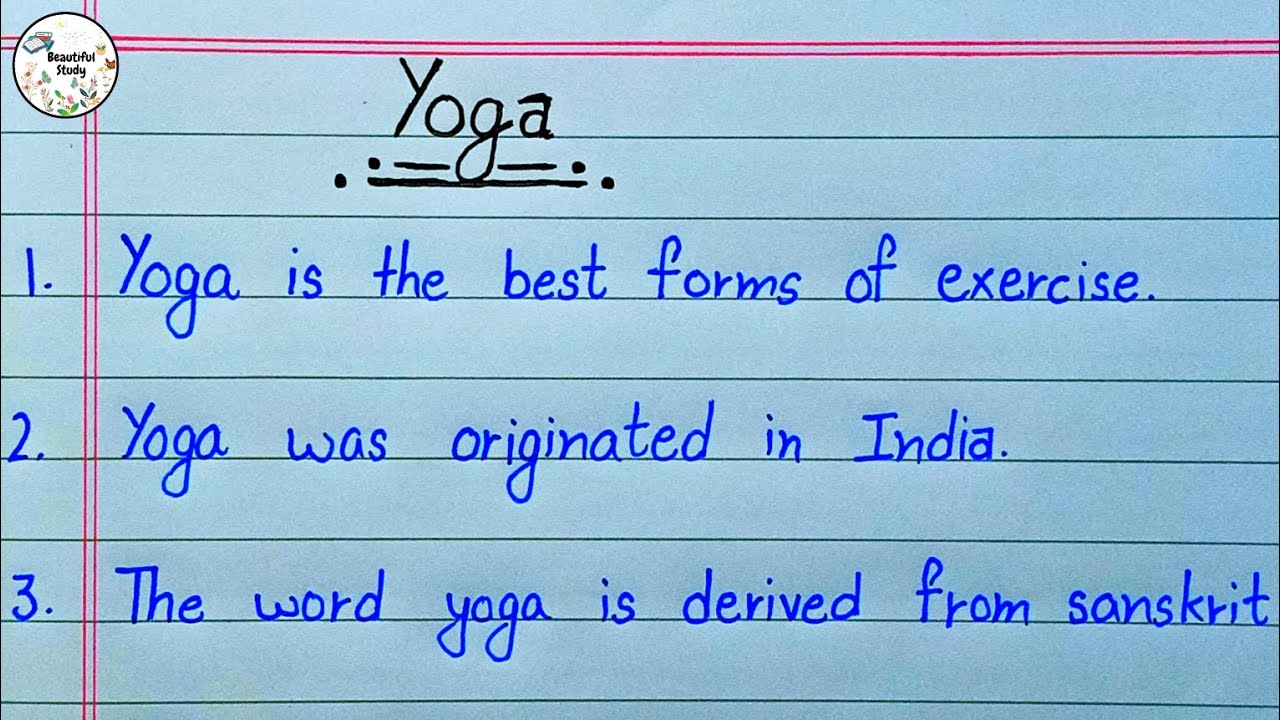 Beautiful
Study
Yoga
1. Yoga is the best forms of exercise.
2. Yoga was originated in India.
3. The word yoga is derived from sanskrit